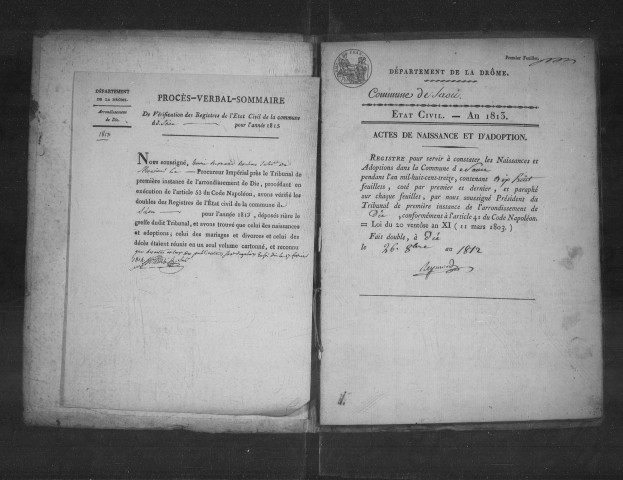 DÉPARTEMENT
DE LA DROME.
Arrondissement
de Die.
1813
PROCÈS-VERBAL-SOMMAIRE
De Vérification des Registres de l'Etat Civil de la commune
de Saou pour l'année 1813
Nous soussigné,
Procureur Impérial près le Tribunal de
première instance de l'arrondissement de Die, procédant en
exécution de l'article 53 du Code Napoléon, avons vérifié les
doubles des Registres de l'Etat Civil de la commune de
Saou pour l'année 1813, déposés rière le
greffe dudit Tribunal, et avons trouvé que celui des naissances
et adoptions; celui des mariages et divorces et celui des
décès étaient réunis en un seul volume cartonné, et reconnu
Premier Feuillet.
DÉPARTEMENT DE LA DRÔME.
Commune de Saou
ETAT CIVIL. — AN 1813.
ACTES DE NAISSANCE ET D'ADOPTION.
REGISTRE pour servir à constater les Naissances et
Adoptions dans la Commune de Saou
pendant l'an mil-huit-cent-treize, contenant Dix huit
feuillets, coté par premier et dernier, et paraphé
sur chaque feuillet, par nous soussigné Président du
Tribunal de première instance de l'arrondissement de
Die, conformément à l'article 41 du Code Napoléon.
= Loi du 20 ventôse an XI (11 mars 1803.)
Fait double, à Die
le 26 8bre an 1812